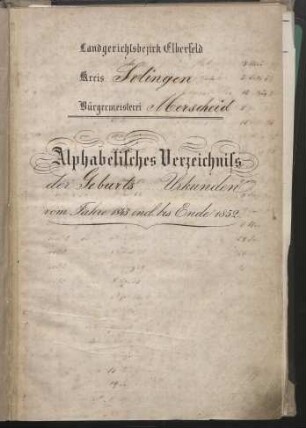 Landgerichtsbezirk Elberfeld
Kreis Solingen
Bürgermeisterei Merscheid
Alphabetisches Verzeichniss
der Geburts Urkunden
vom Jahre 1843 incl. bis Ende 1852.